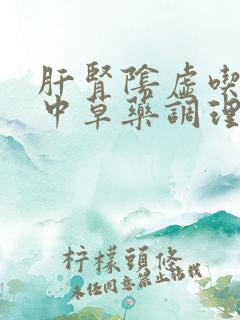 肝腎陰虛喫
中草藥調理
柠檬頭條
未经同意禁止转载